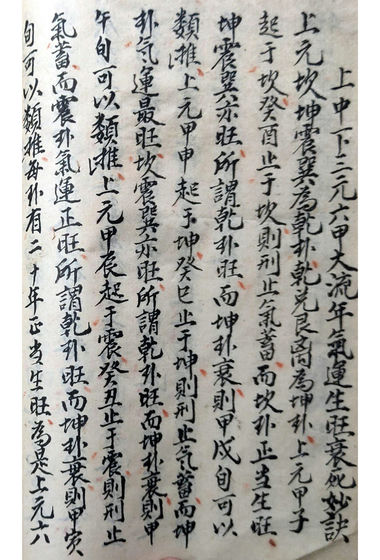 上中下三元六甲大流年氣運生旺衰死妙訣
上元坎坤震巽為乾卦乾兌艮离為坤卦上元甲子
起于坎癸酉止于坎則刑止氣蓄而坎卦正当生旺
坤震巽亦旺所謂乾卦旺而坤卦衰則甲戍旬可以
類推上元甲申起于坤癸巳止于坤則刑止气蓄而坤
卦气運最旺坎震巽亦旺所謂乾卦旺而坤卦衰則甲
午旬可以類推上元甲辰起于震癸丑止于震則刑止
氣蓄而震卦氣運正旺所謂乾卦旺而坤卦衰則甲寅
旬可以類推每卦有二十年正当生旺為是上元六